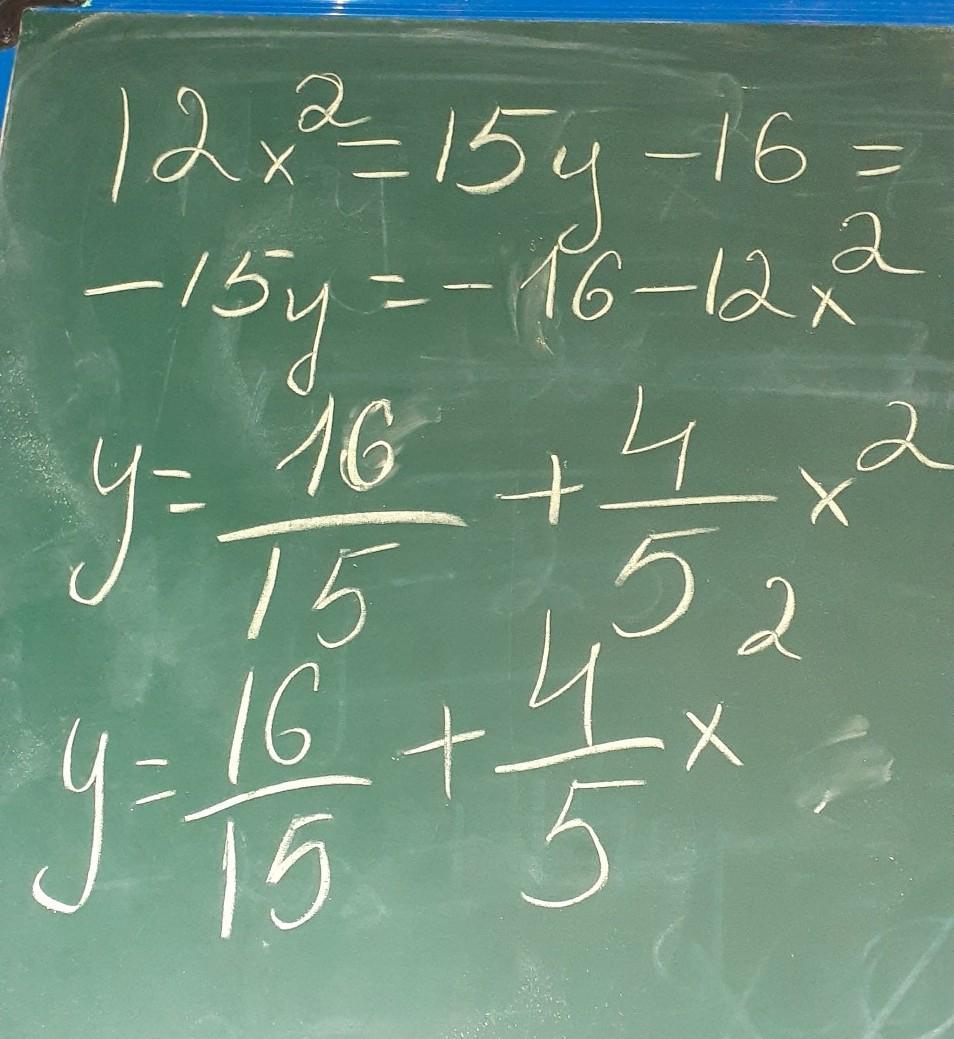 12x² = 15y - 16 =
-15y = -16 - 12x²
y = 16/15 + 4/5 x²
y = 16/15 + 4/5 x²